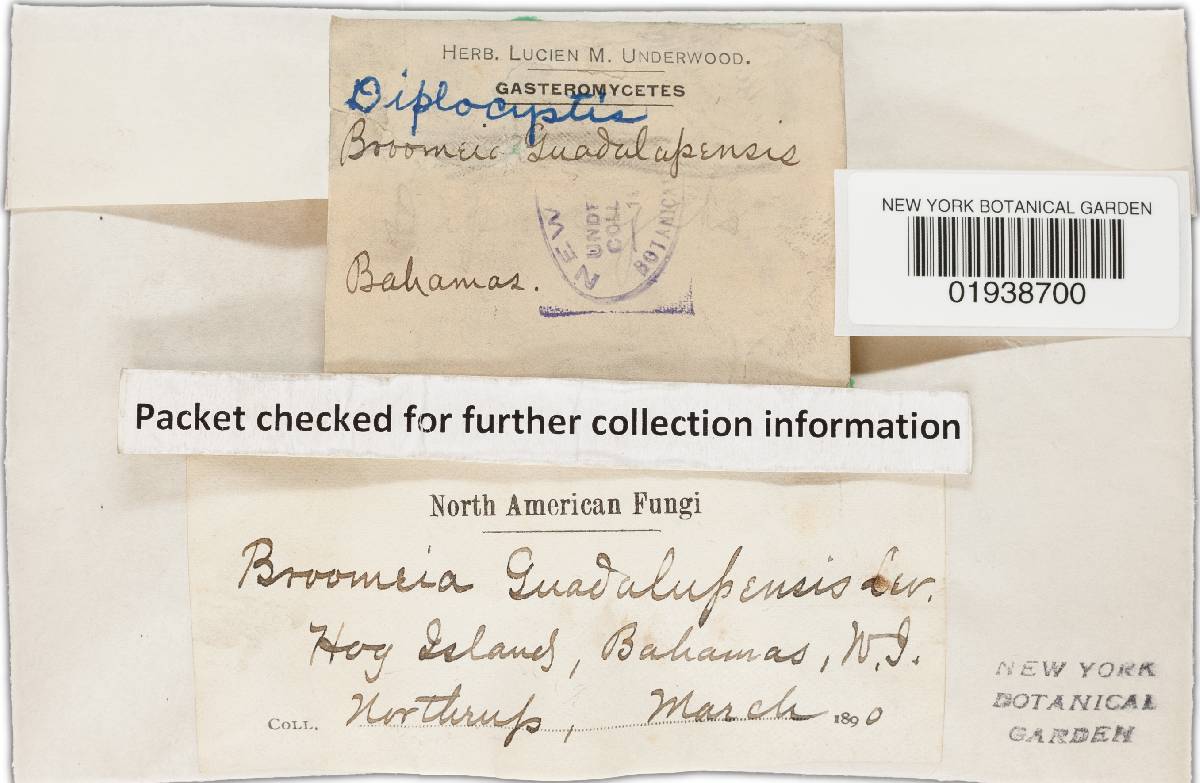 HERB. LUCIEN M. UNDERWOOD.
GASTEROMYCETES
Diplocystis
Broomeia Guadalupensis
NEW
UNDE
COLL
BOTANICA
Bahamas.
NEW YORK BOTANICAL GARDEN
01938700
Packet checked for further collection information
North American Fungi
Broomeia Guadalupensis Lev.
Hog Island, Bahamas, W.I.
COLL. Northrup, March 1890
NEW YORK
BOTANICAL
GARDEN